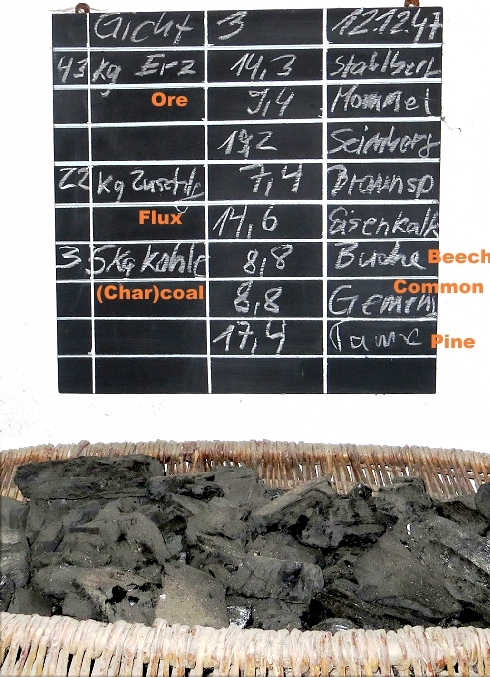 Gicht 3 12.12.47
43 kg Erz 14,3 Stahlberg
Ore
9,4 Mommel
19,2
22 kg Zuschlg 7,4 Braunsp
Flux
14,6 Eisenkalk
3,5 kg Kohle 8,8 Buche Beech
(Char)coal
8,8 Gemeng Common
17,4 Tanne Pine